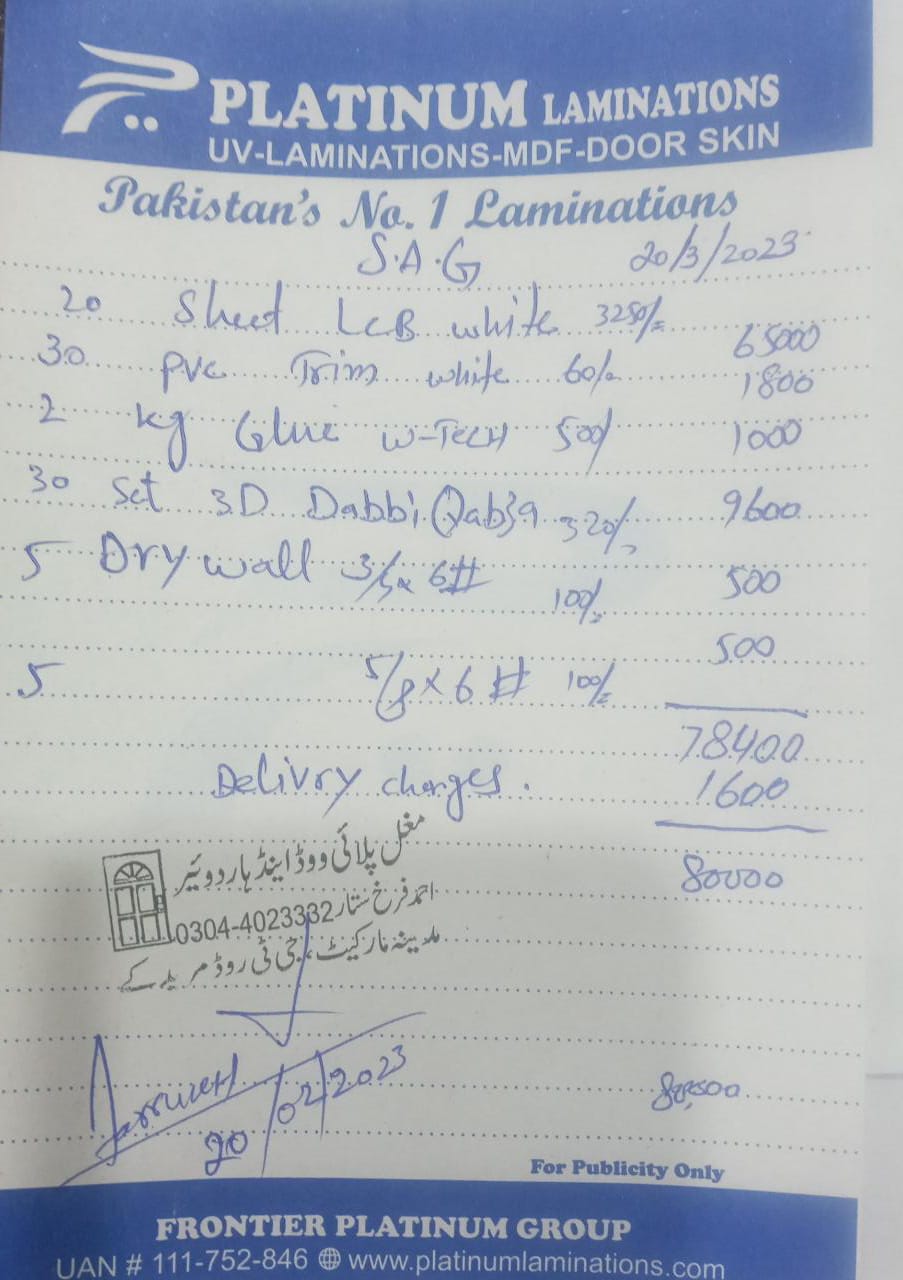 PLATINUM LAMINATIONS
UV-LAMINATIONS-MDF-DOOR SKIN
Pakistan's No. 1 Laminations
S.A.G 20/3/2023
20 Sheet LCB white 3250/= 65000
30 PVC Trim white 60/= 1800
2 kg Glue W-TECH 500/ 1000
30 Set 3D Dabbi Qabza 320/= 9600
5 Dry wall 6# 100/= 500
5 5/8 x 6# 100/= 500
78400
Delivry charges. 1600
80000
مغل پلائی ووڈ اینڈ ہارڈوئیر
احمد فرخ ستار 0304-4023332
مدینہ مارکیٹ، جی ٹی روڈ مریدکے
20/02/2023
For Publicity Only
FRONTIER PLATINUM GROUP
UAN # 111-752-846 www.platinumlaminations.com